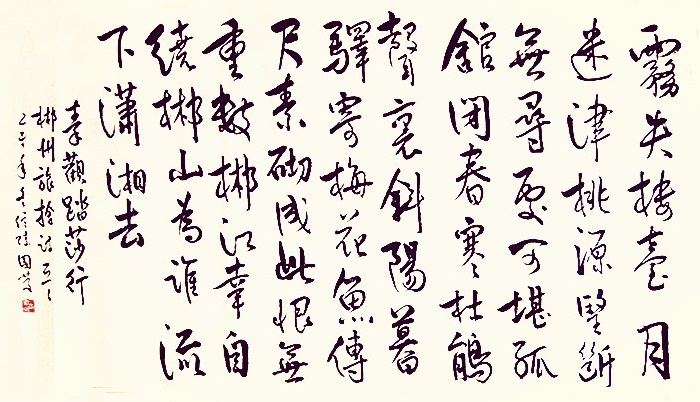 霧失樓臺月
迷津桃源望斷
無尋處可堪孤
館閉春寒杜鵑
聲裏斜陽暮
驛寄梅花魚傳
尺素砌成此恨無
重數郴江幸自
繞郴山為誰流
下瀟湘去
秦觀踏莎行
郴州旅捨